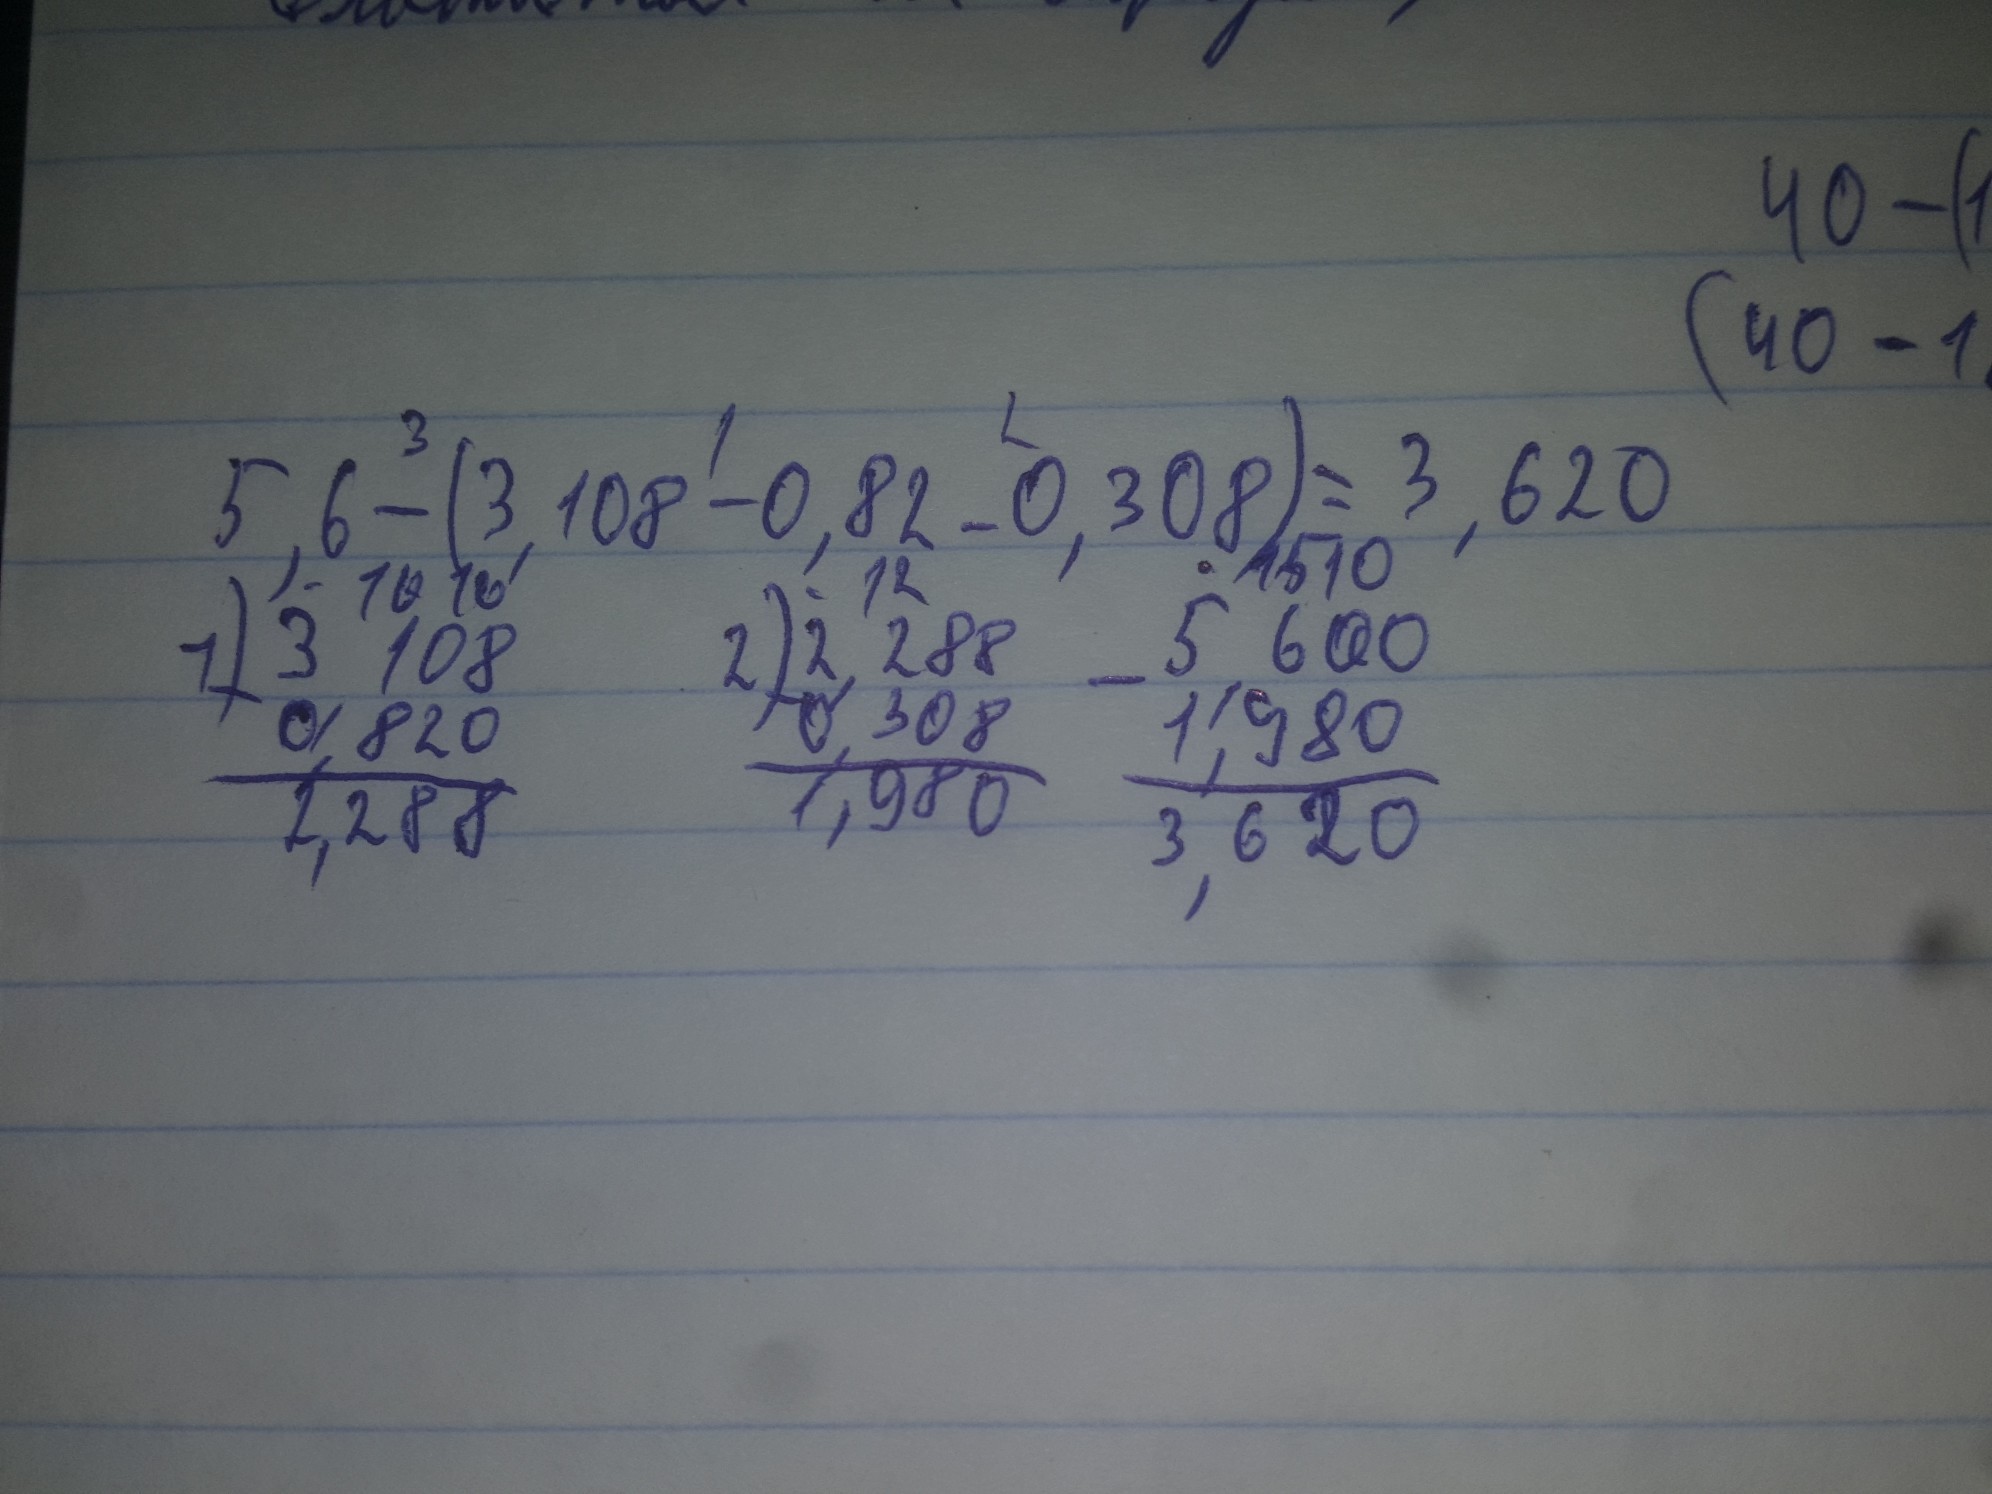 40-(1
(40-1
3 1 2
5,6-(3,108-0,82-0,308)=3,620
10 10 12 15 10
1) 3,108 2) 2,288 - 5,600
0,820 0,308 1,980
2,288 1,980 3,620